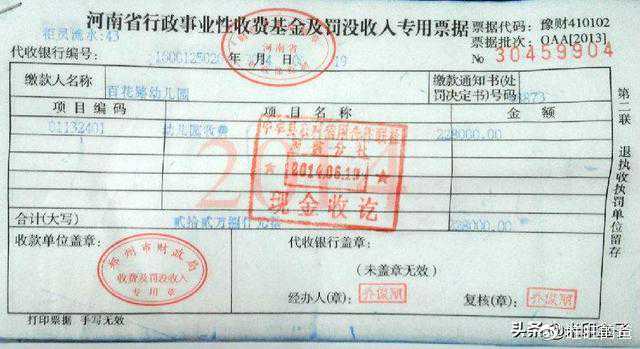 柜员流水:43
河南省行政事业性收费基金及罚没收入专用票据
票据代码: 豫财410102
票据批次: OAA[2013]
No 30459904
代收银行编号:
年 月 日
河南省
缴款人名称
百花路幼儿园
缴款通知书(处
罚决定书)号码
4873
项目编码
项目名称
金额
01132401
幼儿园收费
228000.00
2014.06.19
现金收讫
合计(大写)
贰拾贰万捌仟元整
228000.00
收款单位盖章:
郑州市财政局
收费及罚没收入
专用章
代收银行盖章:
(未盖章无效)
经办人(章):
乔俊顺
复核(章):
乔俊顺
打印票据 手写无效
第二联 退执收执罚单位留存
头条